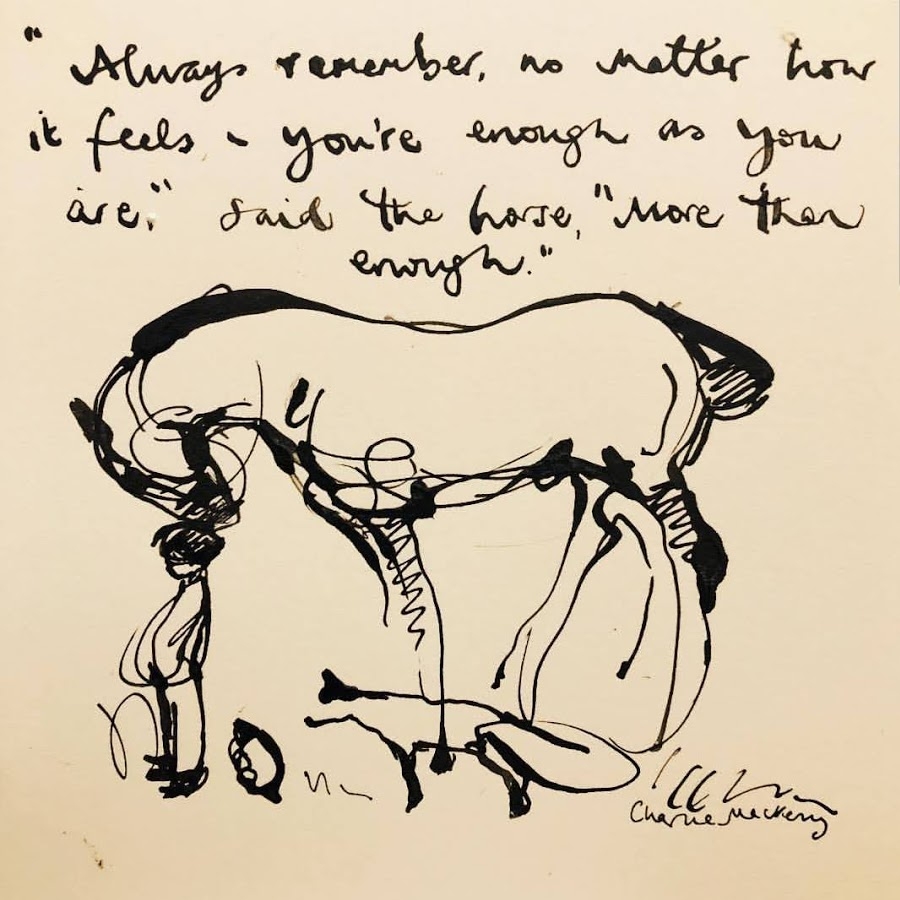 " Always remember, no matter how
it feels - you're enough as you
are," said the horse, "More than
enough."
Charlie Mackesy